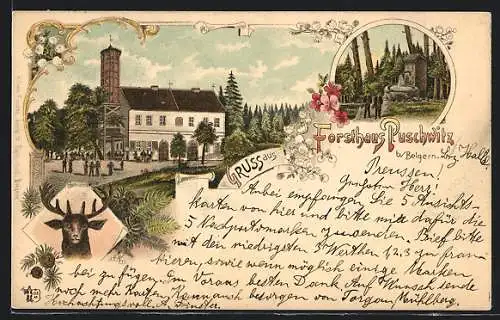 Gruss aus
Forsthaus Puschwitz
b/ Belgern. Prz. Halle
Preussen!
Geehrter Herr!
Anbei empfangen Sie 5 Ansichts-
karten von hier und bitte mir dafür die
5 Nachportomarken zuzusenden. Brief bitte
mit den niedrigsten 3 Werthen 1,2,3 zu fran
kieren, sowie wenn möglich einige Marken
bei zu fügen. Im Voraus besten Dank. Auf Wunsch sende
noch mehr Karten. Kann auch besorgen von Torgau, Mühlberg.
Hochachtungsvoll A.